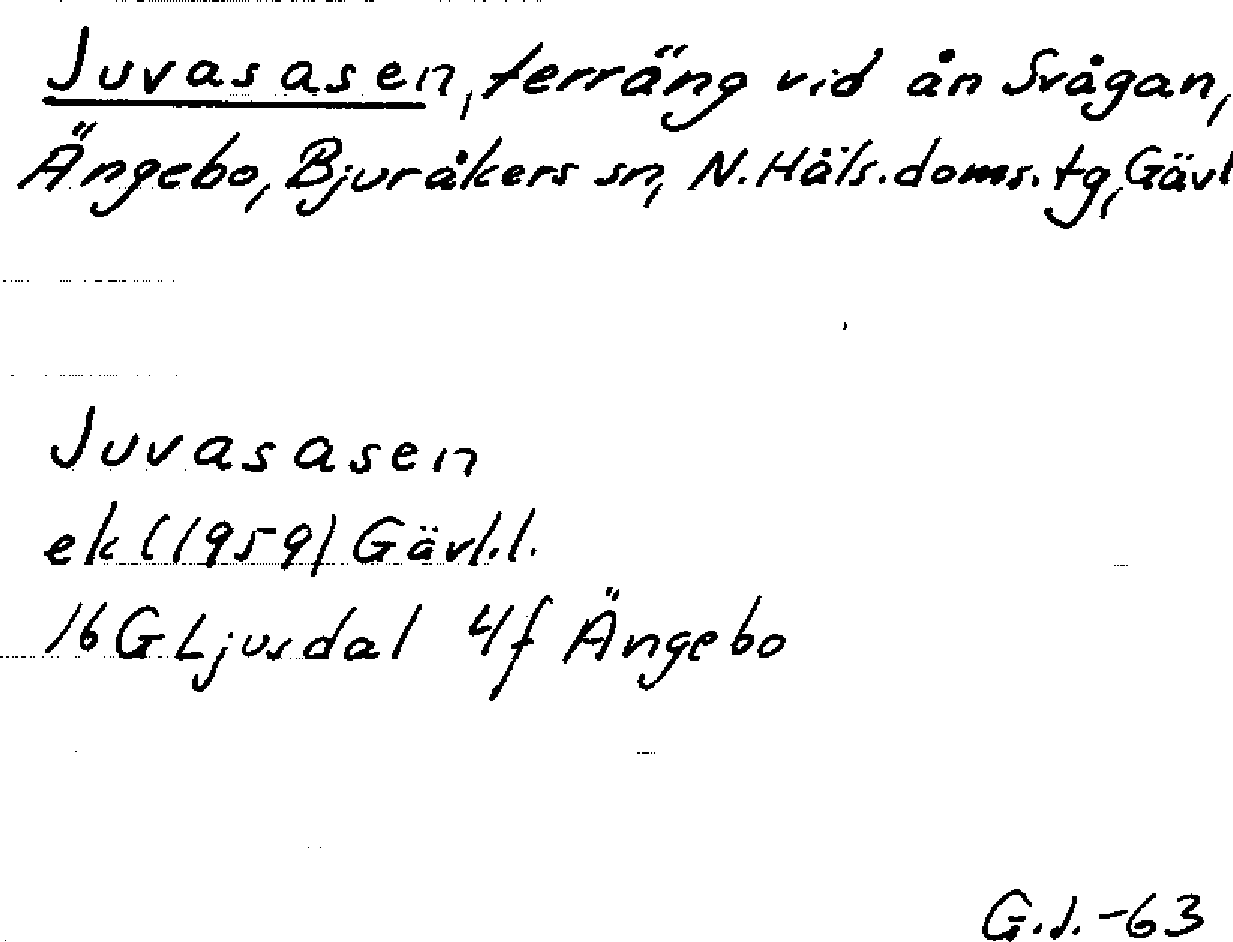 Juvasasen, terräng vid ån Svågan,
Ängebo, Bjuråkers sn, N. Häls. doms. tg, Gävl
Juvasasen
ek (1959) Gävl.l.
16G Ljusdal 4f Ängebo
G.J.-63